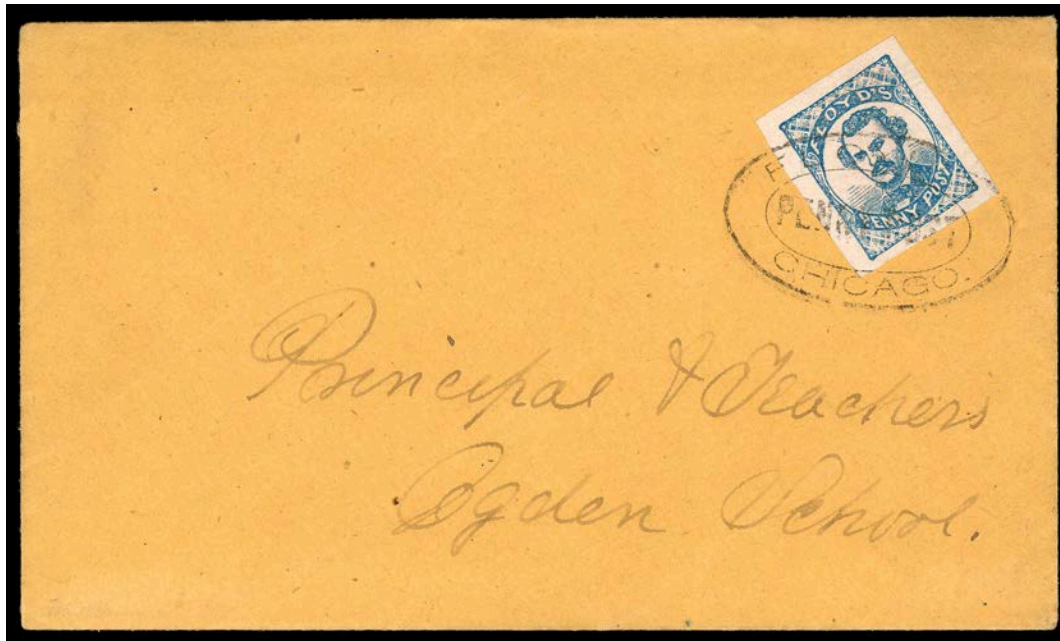 FLOYD'S
PENNY POST
CHICAGO.
Principal & Teachers
Ogden School.